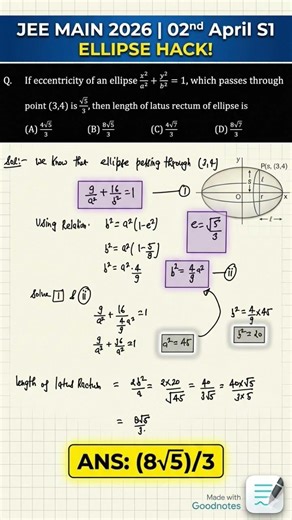 JEE MAIN 2026 | 02nd April S1
ELLIPSE HACK!
Q. If eccentricity of an ellipse x²/a² + y²/b² = 1, which passes through
point (3,4) is √5/3, then length of latus rectum of ellipse is
(A) 4√5/3 (B) 8√5/3 (C) 4√7/3 (D) 8√7/3
Sol:- We know that ellipse passing through (3,4)
9/a² + 16/b² = 1 — I
y P(s, (3,4)
O x
Using Relation b² = a²(1-e²) e = √5/3
b² = a²(1-5/9)
b² = a²·4/9 b² = 4/9 a² — ii
Solve I & ii
9/a² + 16/(4/9 a²) = 1 b² = 4/9 x 45
9/a² + 36/a² = 1 a² = 45 b² = 20
Length of latus Rectum = 2b²/a = 2x20/√45 = 40/3√5 = 40x√5/3x5
= 8√5/3.
ANS: (8√5)/3
Made with
Goodnotes